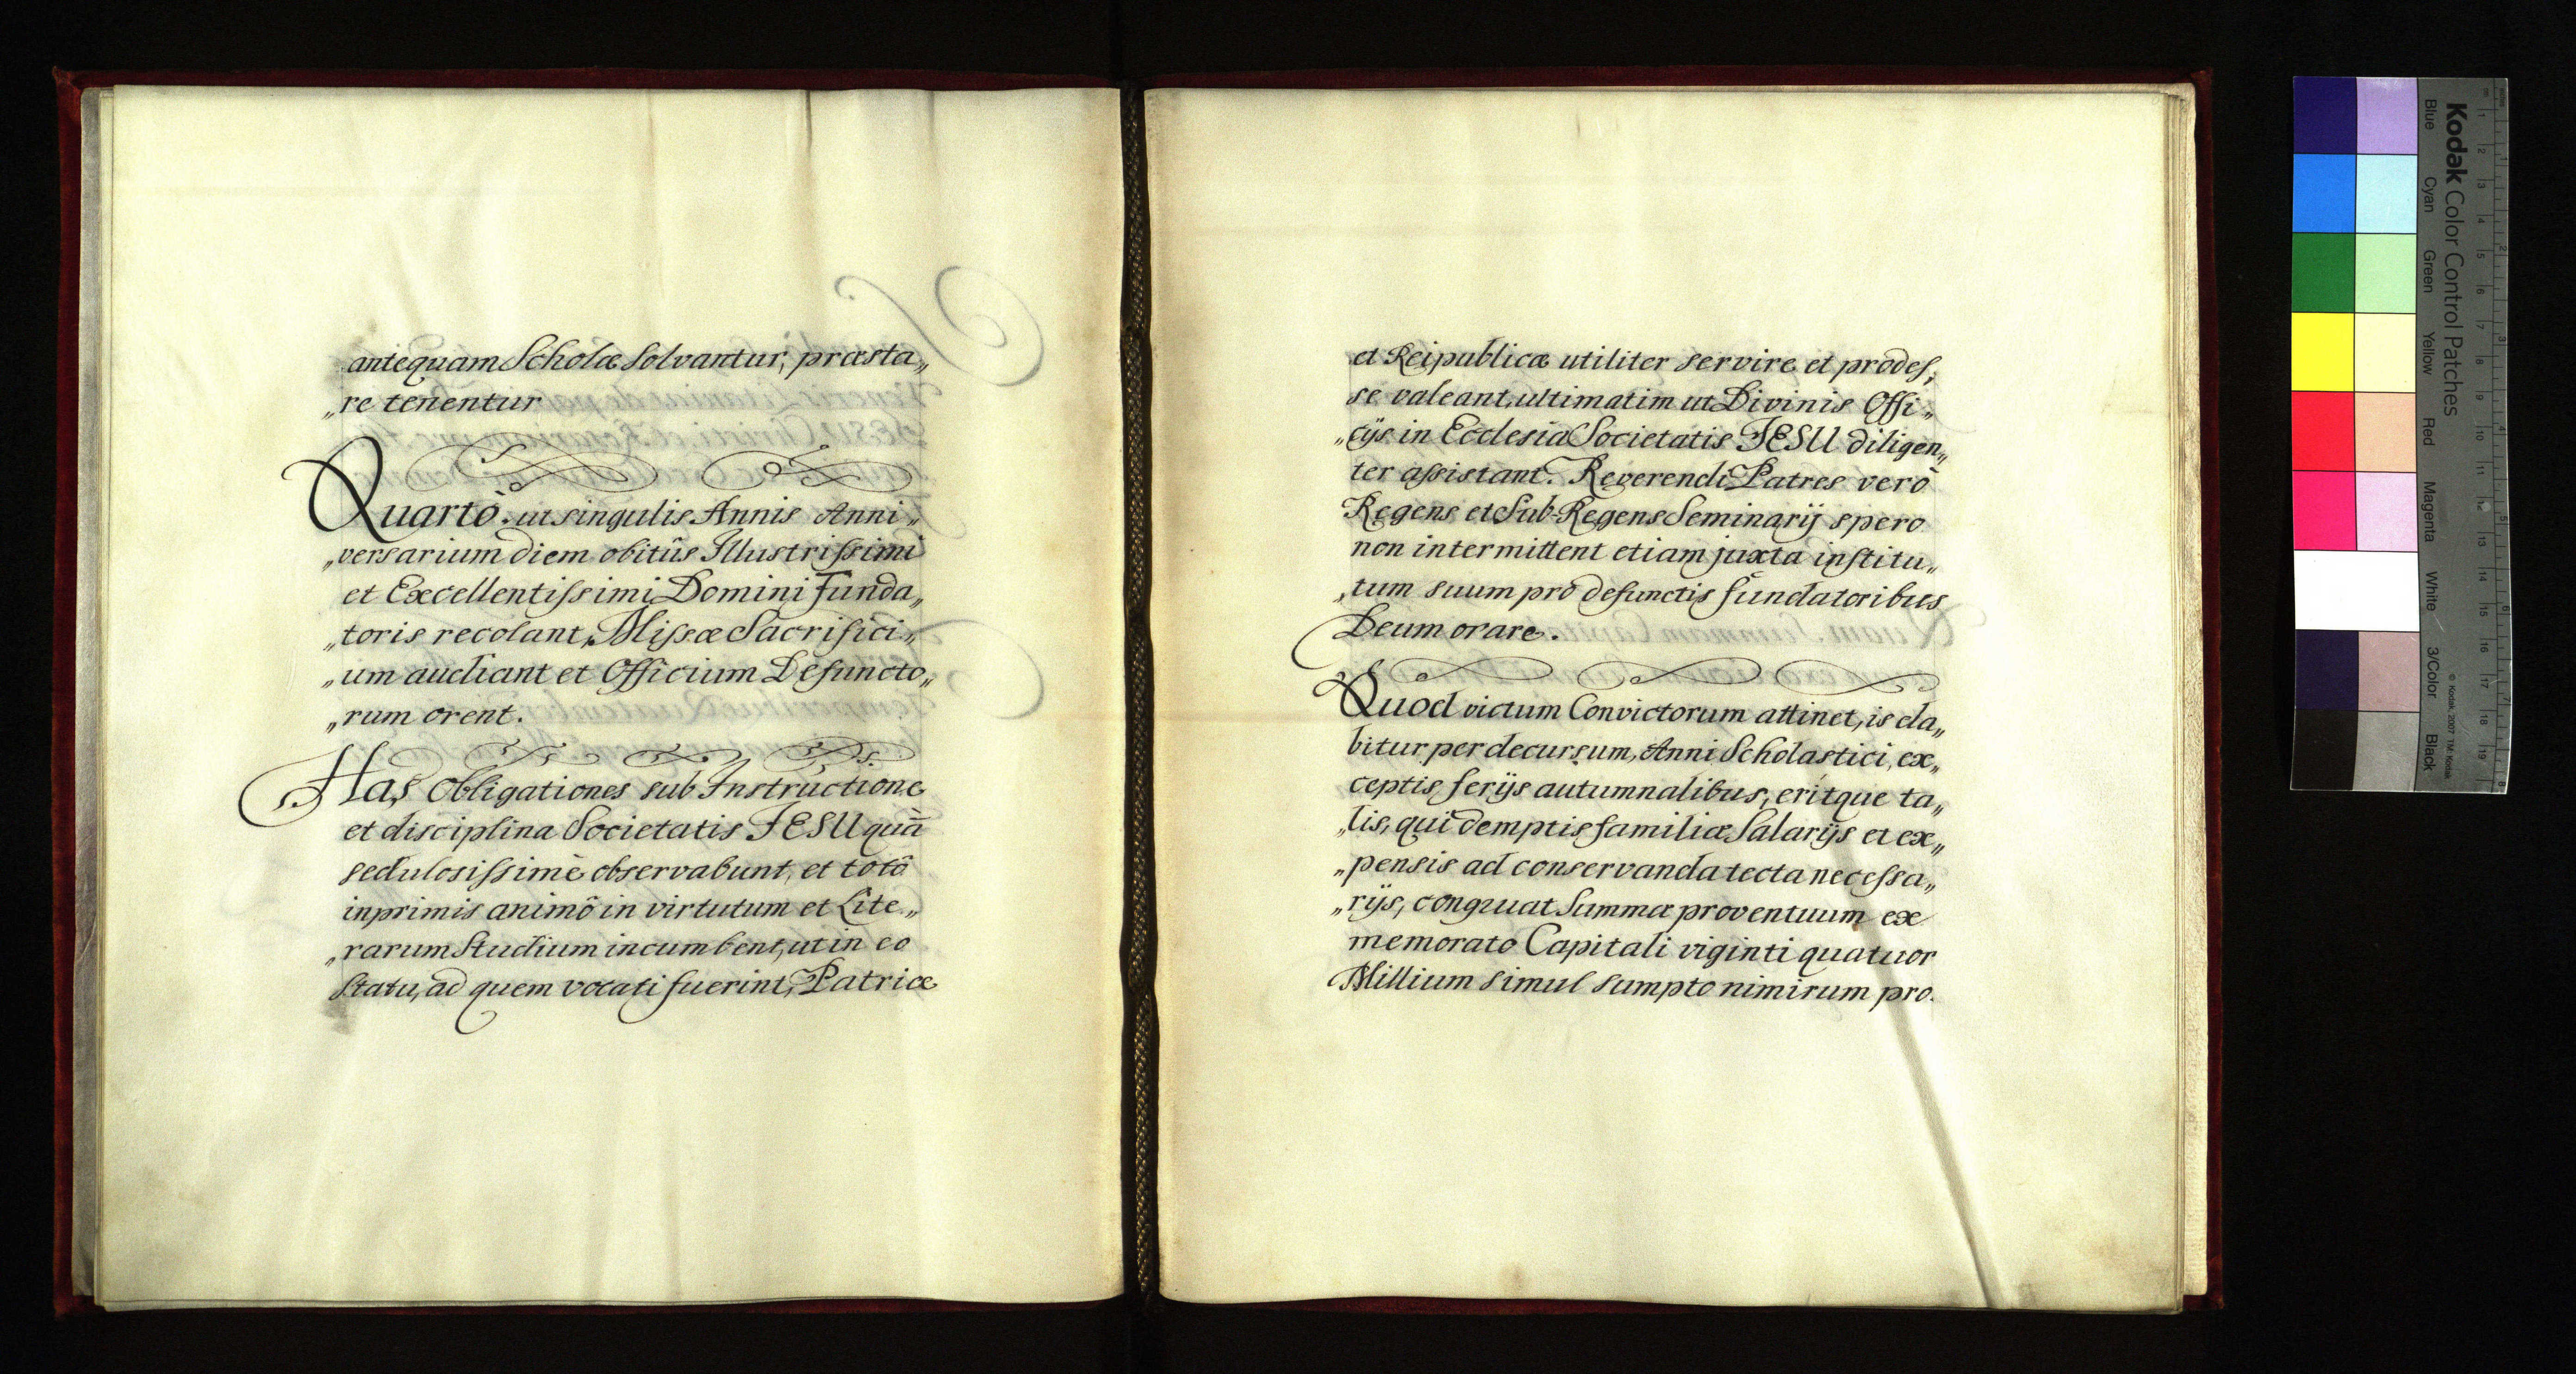 antequam Scholæ Solvantur, præsta„
„re tenentur
Quartò. ut singulis Annis Anni„
„versarium diem obitûs Illustriſsimi
et Excellentiſsimi Domini Funda„
„toris recolant, Miſsæ Sacrifici„
„um audiant et Officium Defuncto„
„rum orent.
Has Obligationes sub Instructione
et disciplina Societatis JESU quã
sedulosiſsimè observabunt, et totô
inprimis animô in virtutum et Lite„
„rarum Studium incumbent, ut in eo
Statu, ad quem vocati fuerint, Patriæ
et Reipublicæ utiliter servire et prodeſ„
se valeant, ultimatim ut Divinis Offi„
„cijs in Ecclesia Societatis JESU diligen„
ter aſsistant. Reverendi Patres verò
Regens et Sub-Regens Seminarij spero
non intermittent etiam juxta inſtitu„
„tum suum pro defunctis fundatoribus
Deum orare.
Quod victum Convictorum attinet, is da„
bitur per decursum, Anni Scholastici, ex„
ceptis ferijs autumnalibus, eritque ta„
„lis, qui demptis familiæ Salarijs et ex„
„pensis ad conservanda tecta neceſsa„
„rijs, congruat Summæ proventuum ex
memorato Capitali viginti quatuor
Millium simul sumpto nimirum pro.
Kodak Color Control Patches
Blue Cyan Green Yellow Red Magenta White 3/Color Black
© Kodak, 2007 TM: Kodak